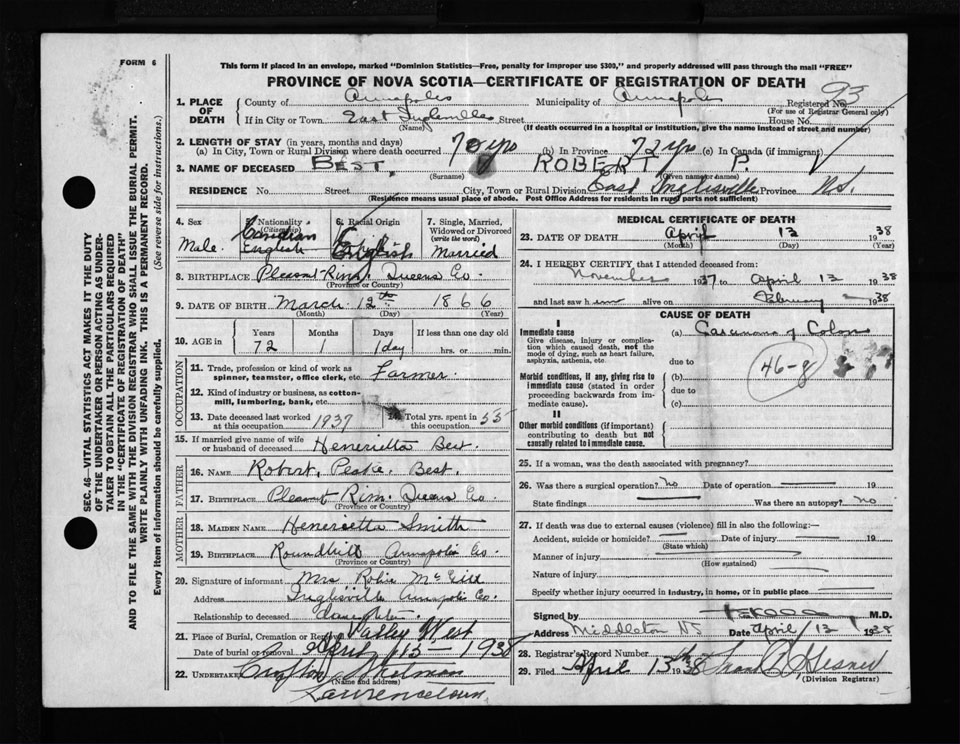 FORM 6
This form if placed in an envelope, marked "Dominion Statistics—Free, penalty for improper use $300," and properly addressed will pass through the mail "FREE"
PROVINCE OF NOVA SCOTIA—CERTIFICATE OF REGISTRATION OF DEATH
93
1. PLACE OF DEATH County of Annapolis Municipality of Annapolis Registered No.
(For use of Registrar General only)
If in City or Town East Inglisville Street House No.
(Name) (If death occurred in a hospital or institution, give the name instead of street and number)
2. LENGTH OF STAY (in years, months and days)
(a) In City, Town or Rural Division where death occurred 70 yrs (b) In Province 72 yrs (c) In Canada (if immigrant)
3. NAME OF DECEASED BEST, ROBERT P.
(Surname) (Given name or names)
RESIDENCE No. Street City, Town or Rural Division East Inglisville Province N.S.
(Residence means usual place of abode. Post Office Address for residents in rural parts not sufficient)
4. Sex 5. Nationality (Citizenship) 6. Racial Origin 7. Single, Married, Widowed or Divorced (write the word)
Male. Canadian English English Married
8. BIRTHPLACE Pleasant River Queens Co.
(Province or Country)
9. DATE OF BIRTH March 12th 1866
(Month) (Day) (Year)
10. AGE in Years Months Days If less than one day old
72 1 1 day hrs. or min.
OCCUPATION
11. Trade, profession or kind of work as spinner, teamster, office clerk, etc. Farmer.
12. Kind of industry or business, as cotton-mill, lumbering, bank, etc.
13. Date deceased last worked at this occupation 1937 14. Total yrs. spent in this occupation 55
15. If married give name of wife or husband of deceased Henerietta Best.
FATHER
16. NAME Robert, Peake. Best.
17. BIRTHPLACE Pleasant River. Queens Co.
(Province or Country)
MOTHER
18. MAIDEN NAME Henerietta Smith
19. BIRTHPLACE Roundhill Annapolis Co.
(Province or Country)
20. Signature of informant Mrs Robie McGill
Address Inglisville Annapolis Co.
Relationship to deceased daughter
21. Place of Burial, Cremation or Removal Valley West
Date of burial or removal April 15—1938
22. UNDERTAKER
(Name and address)
Lawrencetown
MEDICAL CERTIFICATE OF DEATH
23. DATE OF DEATH April 13 1938
(Month) (Day) (Year)
24. I HEREBY CERTIFY that I attended deceased from:
November 1937 to April 13 1938
and last saw him alive on February — 1938
CAUSE OF DEATH
I
Immediate cause
Give disease, injury or complication which caused death, not the mode of dying, such as heart failure, asphyxia, asthenia, etc.
(a) Carcinoma of Colon
due to
46-8
Morbid conditions, if any, giving rise to immediate cause (stated in order proceeding backwards from immediate cause).
(b)
due to
(c)
II
Other morbid conditions (if important) contributing to death but not causally related to immediate cause.
25. If a woman, was the death associated with pregnancy?
26. Was there a surgical operation? No Date of operation 19
State findings Was there an autopsy? No
27. If death was due to external causes (violence) fill in also the following:—
Accident, suicide or homicide? Date of injury 19
(State which)
Manner of injury
(How sustained)
Nature of injury
Specify whether injury occurred in industry, in home, or in public place
Signed by M.D.
Address Middleton NS Date April 13 1938
28. Registrar's Record Number
29. Filed April 13th 1938
(Division Registrar)
SEC. 46—VITAL STATISTICS ACT, MAKES IT THE DUTY
OF THE UNDERTAKER OR PERSON ACTING AS UNDER-
TAKER TO OBTAIN ALL THE PARTICULARS REQUIRED
IN THE "CERTIFICATE OF REGISTRATION OF DEATH"
AND TO FILE THE SAME WITH THE DIVISION REGISTRAR WHO SHALL ISSUE THE BURIAL PERMIT.
WRITE PLAINLY WITH UNFADING INK. THIS IS A PERMANENT RECORD.
Every item of information should be carefully supplied. (See reverse side for instructions.)